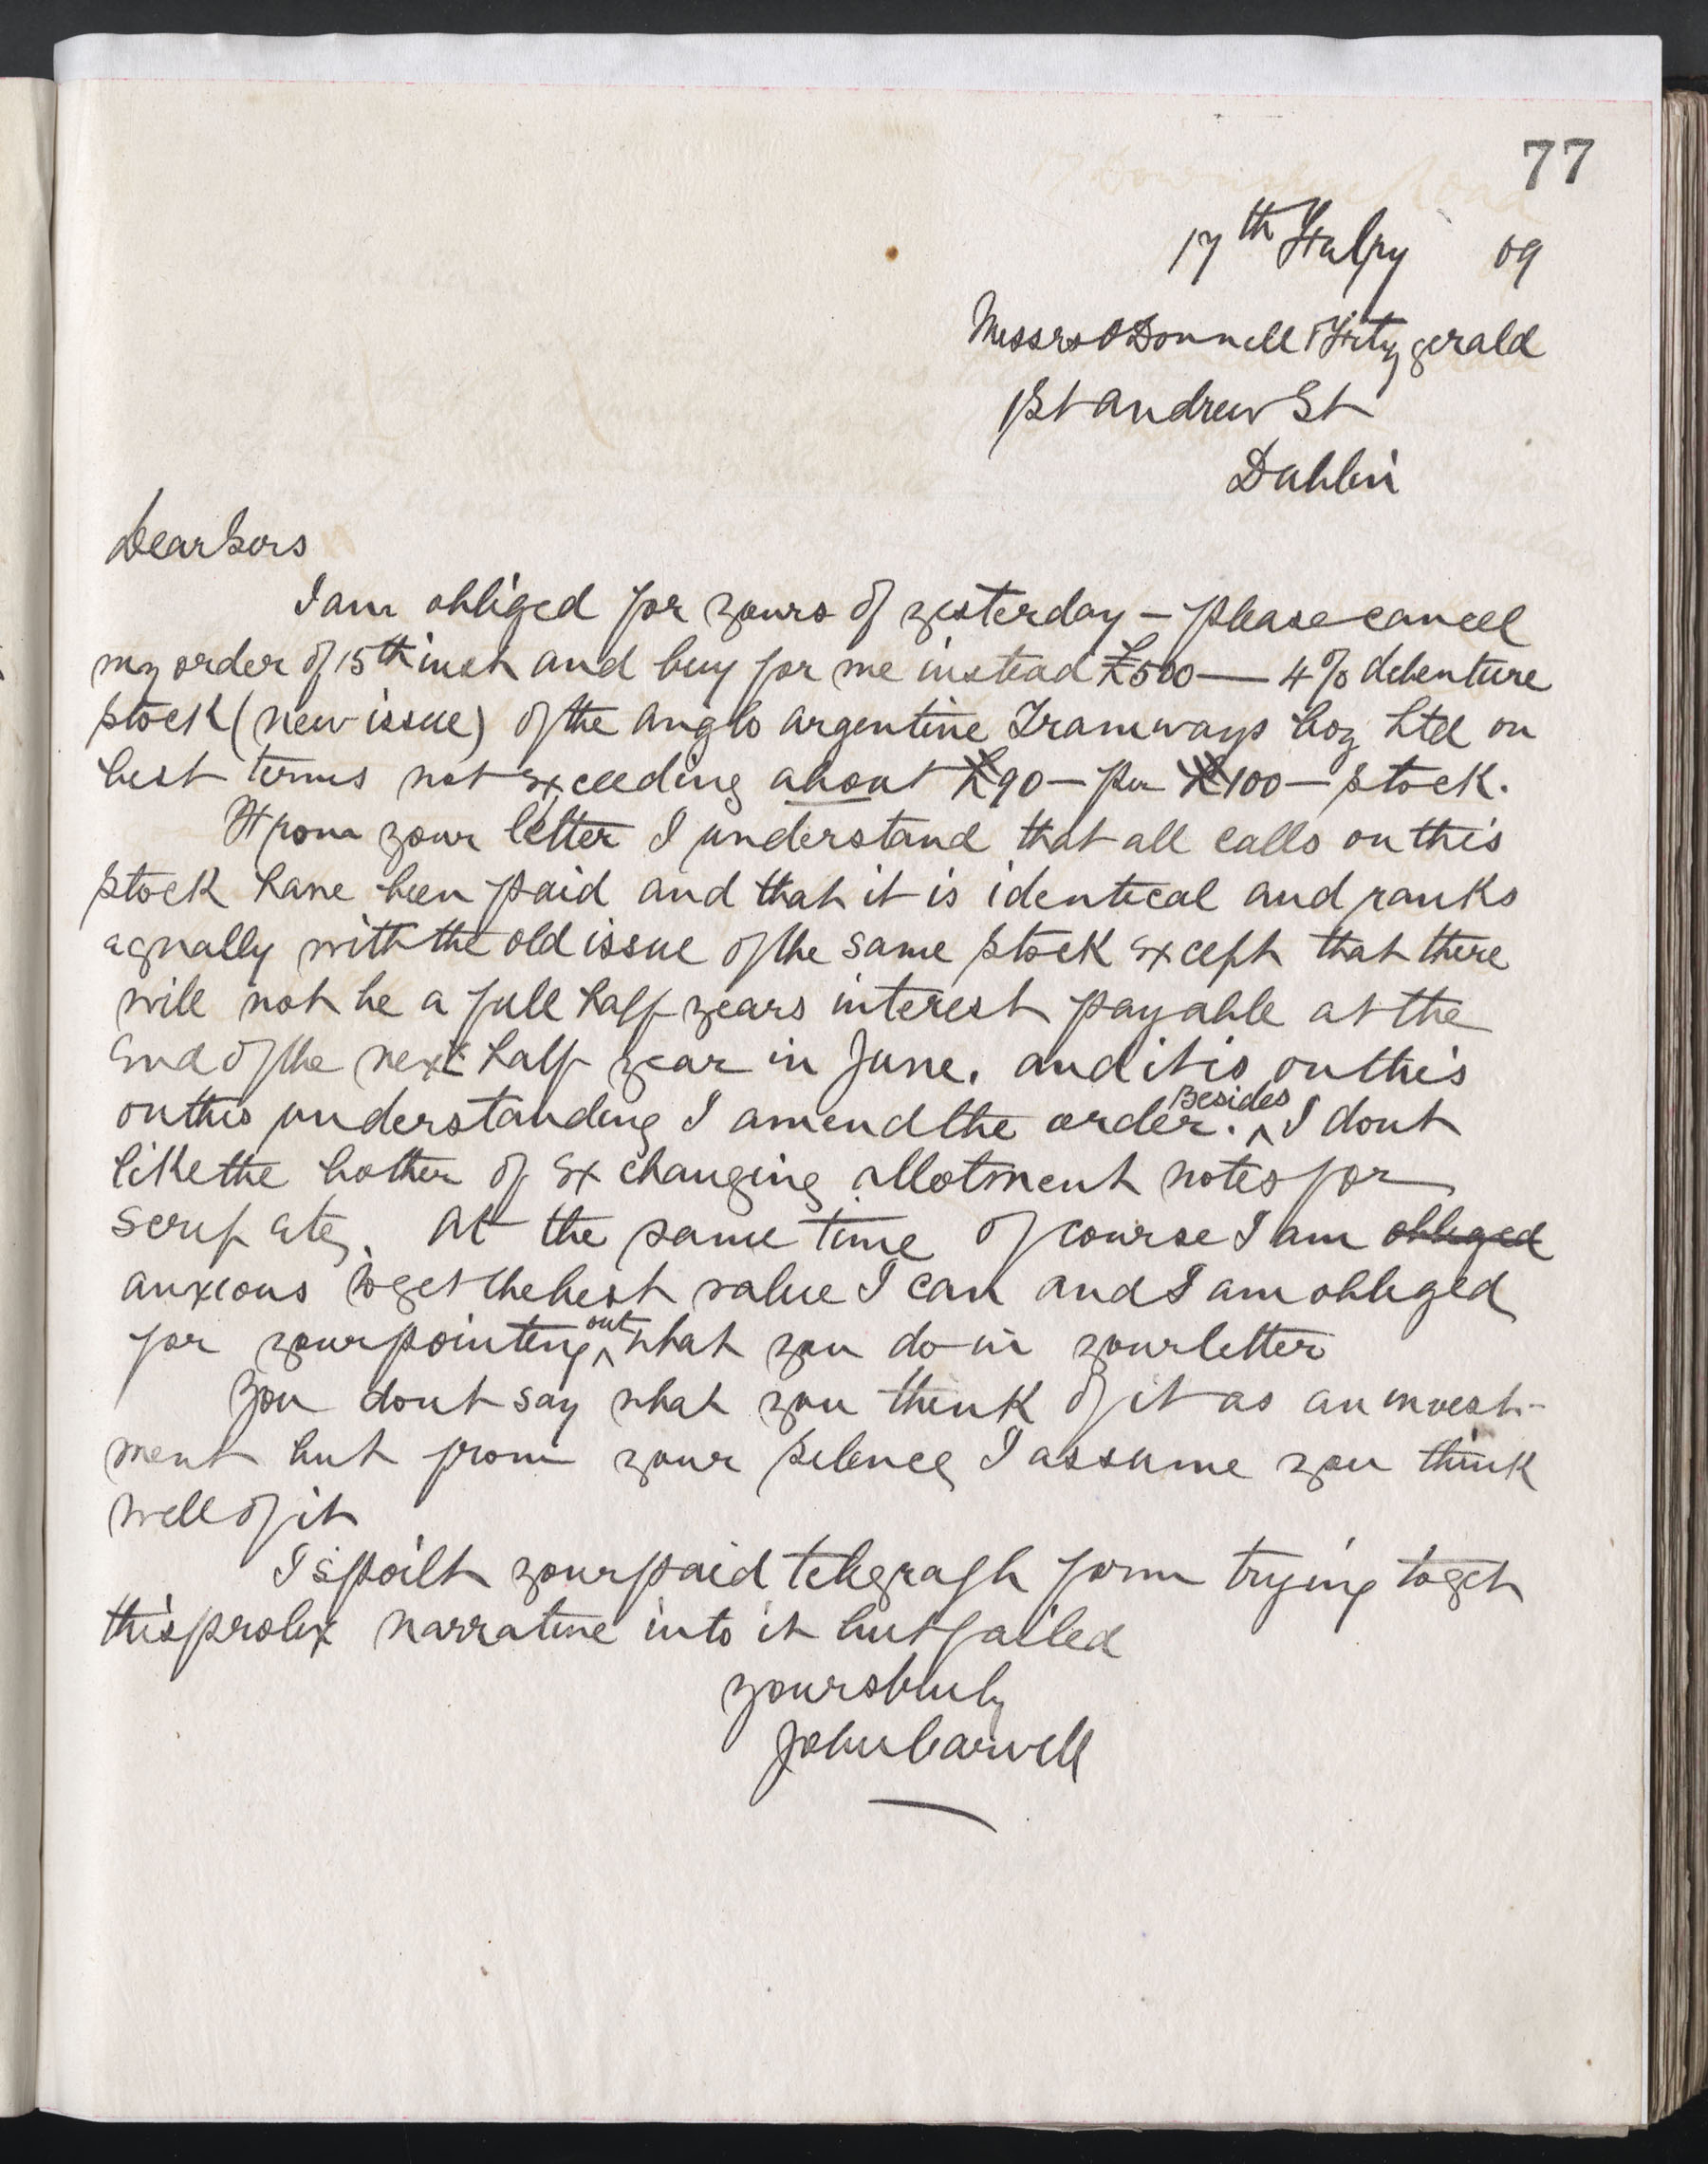 77
17th Feby 09
Messrs O Donnell & Fitzgerald
1 St Andrew St
Dublin
Dear Sirs
I am obliged for yours of yesterday – please cancel
my order of 15th inst and buy for me instead £500 — 4% debenture
stock (new issue) of the Anglo Argentine Tramways Coy Ltd on
best terms not exceeding about £90 – per £100 – stock.
From your letter I understand that all calls on this
stock have been paid and that it is identical and ranks
equally with the old issue of the same stock except that there
will not be a full half years interest payable at the
End of the next half year in June. and it is on this
on this understanding I amend the order. Besides I dont
like the bother of exchanging allotment notes for
scrip etc. At the same time of course I am obliged
anxious to get the best value I can and I am obliged
for your pointing out what you do in your letter
You dont say what you think of it as an invest-
ment but from your silence I assume you think
well of it
I spoilt your paid telegraph form trying to get
this prolix narrative into it but failed
Yours truly
John Carvell